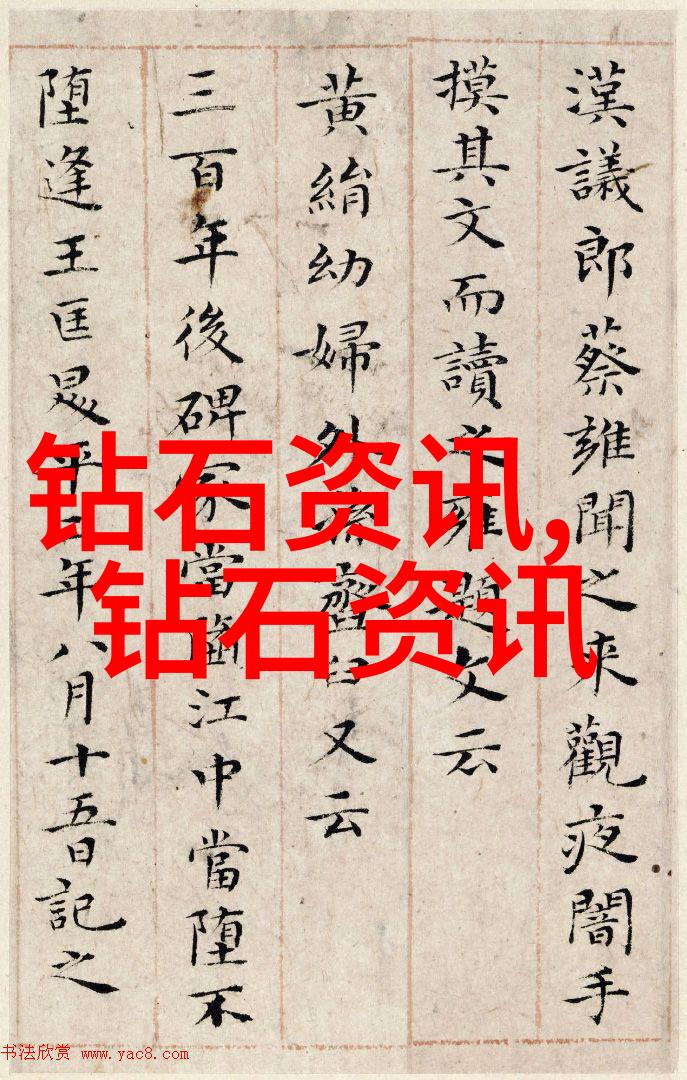 漢議郎蔡雍聞之来觀夜闇手
摸其文而讀之雍題文云
黃絹幼婦外臼又云
三百年後碑冢當江中當堕不
堕逢王匡昇平二年八月十五日記之
钻石资讯,
钻石资讯
书法欣赏 www.yac8.com